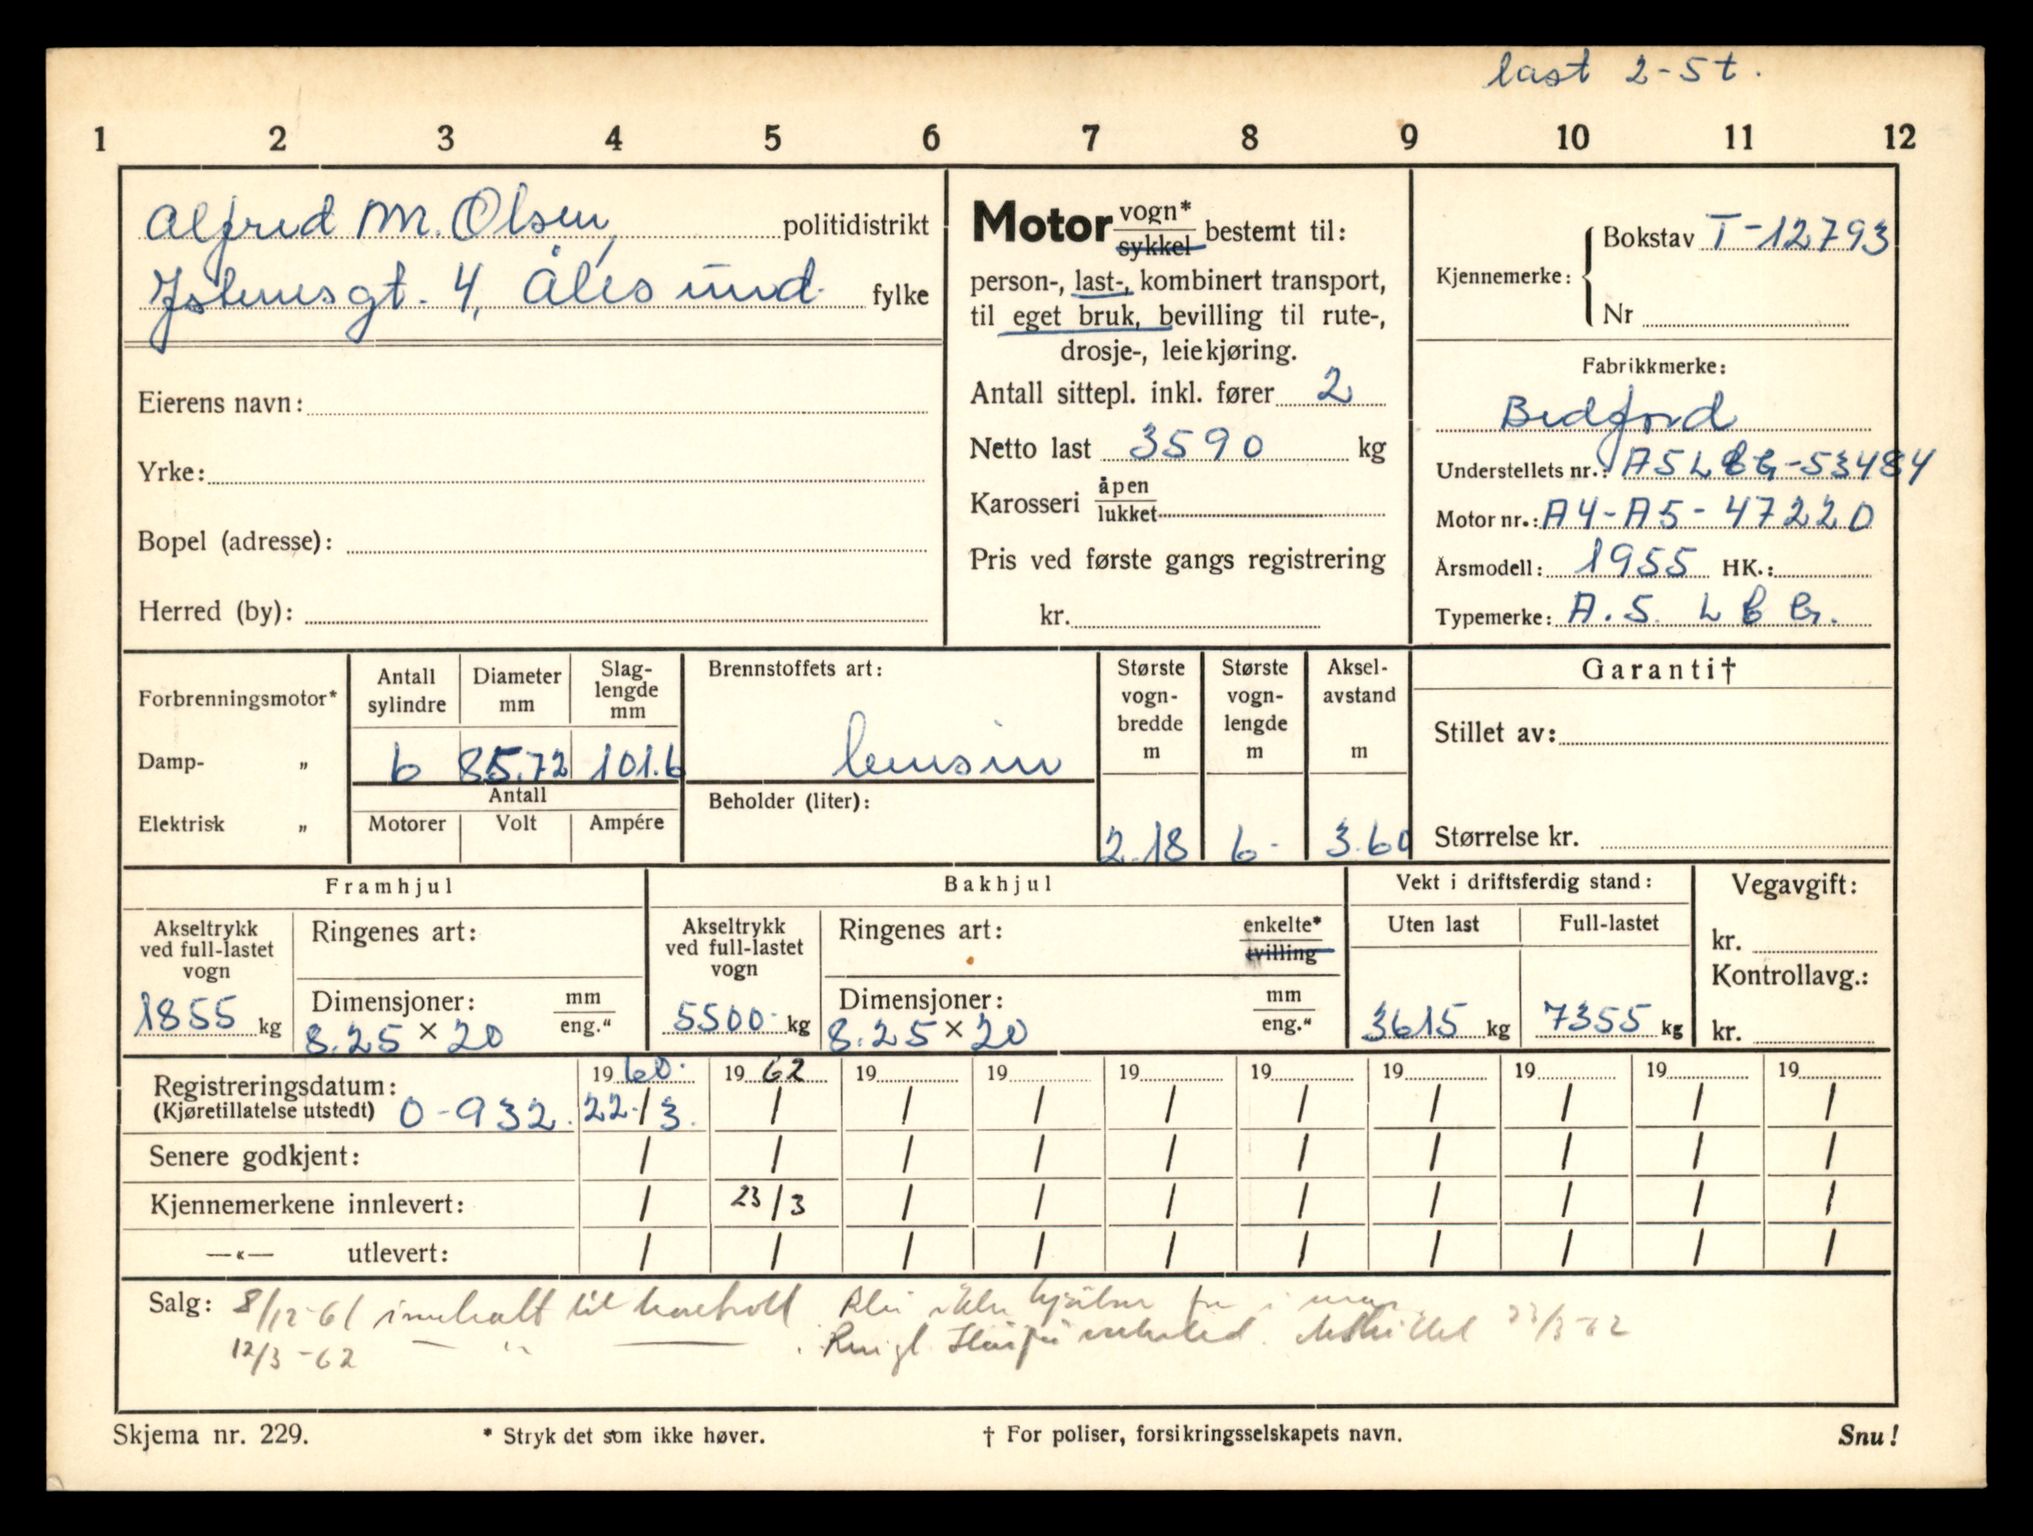 last 2-5t.
1 2 3 4 5 6 7 8 9 10 11 12
Alfred M. Olsen, politidistrikt
gt. 4, Ålesund fylke
Eierens navn:
Yrke:
Bopel (adresse):
Herred (by):
Motor vogn* sykkel bestemt til:
person-, last-, kombinert transport,
til eget bruk, bevilling til rute-,
drosje-, leiekjøring.
Antall sittepl. inkl. fører 2
Netto last 3590 kg
Karosseri åpen lukket
Pris ved første gangs registrering
kr.
Kjennemerke: Bokstav T-12793
Nr
Fabrikkmerke:
Bedford
Understellets nr.: A5LBG-53484
Motor nr.: A4-A5-47220
Årsmodell: 1955 HK.:
Typemerke: A.5. LBG.
Forbrenningsmotor*
Damp- „
Elektrisk „
Antall sylindre
6
Diameter mm
85.72
Slag-lengde mm
101.6
Antall
Motorer Volt Ampére
Brennstoffets art:
bensin
Beholder (liter):
Største vogn-bredde m
2.18
Største vogn-lengde m
6-
Aksel-avstand m
3.60
Garanti†
Stillet av:
Størrelse kr.
Framhjul
Akseltrykk ved full-lastet vogn
1855 kg
Ringenes art:
Dimensjoner: mm eng."
8.25 × 20
Bakhjul
Akseltrykk ved full-lastet vogn
5500- kg
Ringenes art: enkelte* tvilling
Dimensjoner: mm eng."
8.25 × 20
Vekt i driftsferdig stand:
Uten last Full-lastet
3615 kg 7355 kg
Vegavgift:
kr.
Kontrollavg.:
kr.
1960. 1962 19 19 19 19 19 19 19 19
Registreringsdatum:
(Kjøretillatelse utstedt) 0-932. 22./3. / / / / / / / / /
Senere godkjent: / / / / / / / / / /
Kjennemerkene innlevert: / 23/3 / / / / / / / /
—«— utlevert: / / / / / / / / / /
Salg: 8/12-61 innkalt til kontroll.
12/3-62 — " — 23/3-62
Skjema nr. 229. * Stryk det som ikke høver. † For poliser, forsikringsselskapets navn. Snu!